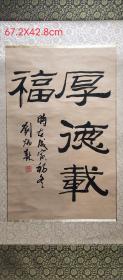 67.2X42.8cm
厚德載
福
時在
劉炳森